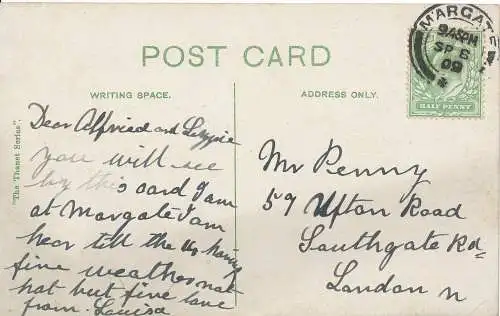 POST CARD
WRITING SPACE.
ADDRESS ONLY.
"The Thanet Series"
MARGATE
9.45PM
SP 6
09
HALF PENNY
Dear Alfried and
you will see
by this card I am
at Margate I am
hear till the 14 having
fine weather not
hot but fine love
from Louisa
Mr Penny
59 Ufton Road
Southgate Rd
London N